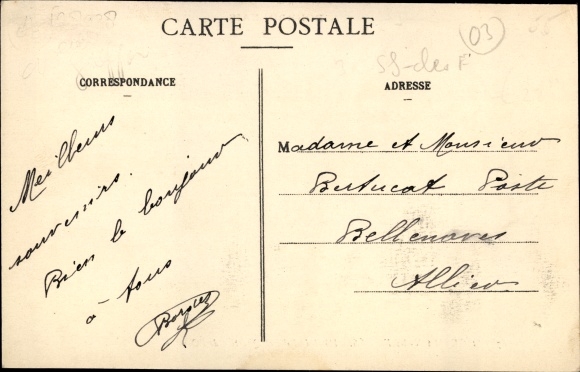 CARTE POSTALE
03
CORRESPONDANCE
ADRESSE
Meilleurs
souvenirs.
Bien le bonjour
à tous
Madame et Monsieur
Bertucat Poste
Bellenaves
Allier